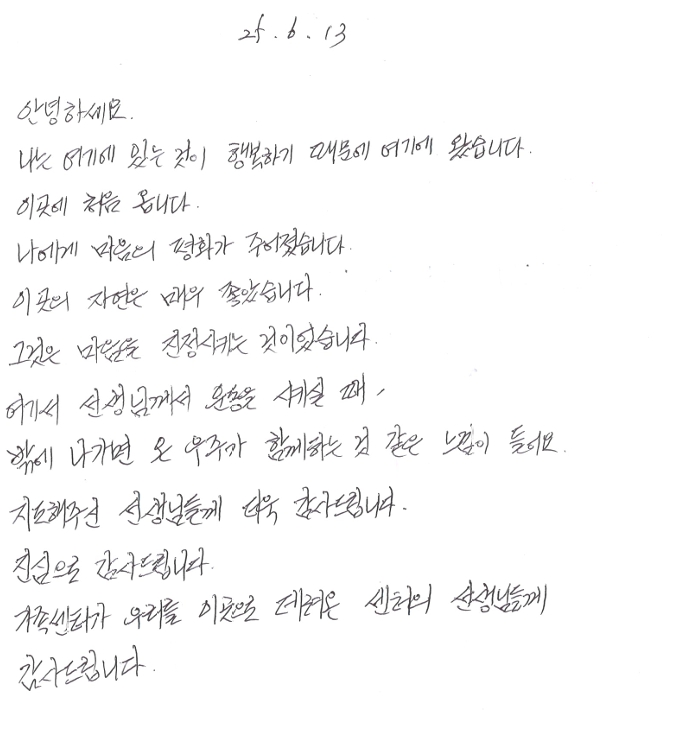 25. 6. 13
안녕하세요.
나는 여기에 있는 것이 행복하기 때문에 여기에 왔습니다.
이곳에 처음 옵니다.
나에게 마음의 평화가 주어졌습니다.
이곳의 자연은 매우 좋았습니다.
그것은 마음을 진정시키는 것이었습니다
여기서 선생님께서 운동을 시키실 때,
밖에 나가면 온 우주가 함께하는 것 같은 느낌이 들어요.
지도해주신 선생님들께 더욱 감사드립니다.
진심으로 감사드립니다.
가족센터가 우리를 이곳으로 데려온 센터의 선생님들께
감사드립니다.